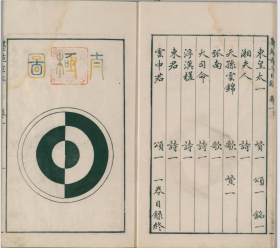 東皇太一 贊一 頌一 銘一
湘夫人 詩一
天孫雲錦 歌一 贊一
孤南 歌一
大司命 詩一
浮溟槎 詩一
東君 詩一
雲中君 頌一 一卷目錄終
太極圖